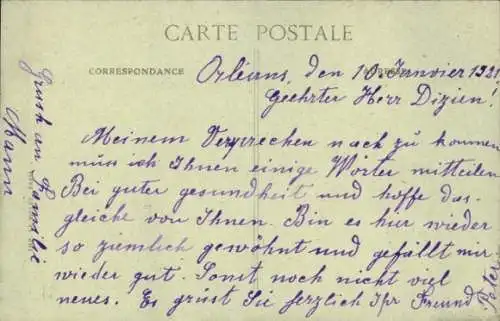 CARTE POSTALE
CORRESPONDANCE
Orléans, den 10. Janvier 1921
Geehrter Herr Dizien!
Meinem Versprechen nach zu kommen
muss ich Ihnen einige Wörter mitteilen
Bei guter gesundheit und hoffe das-
gleiche von Ihnen. Bin es hir wieder
so ziemlich gewöhnt und gefällt mir
wieder gut. Sonst noch nicht viel
neues. Es grüst Sie herzlich Ihr Freund
Gruss an Familie
Mann